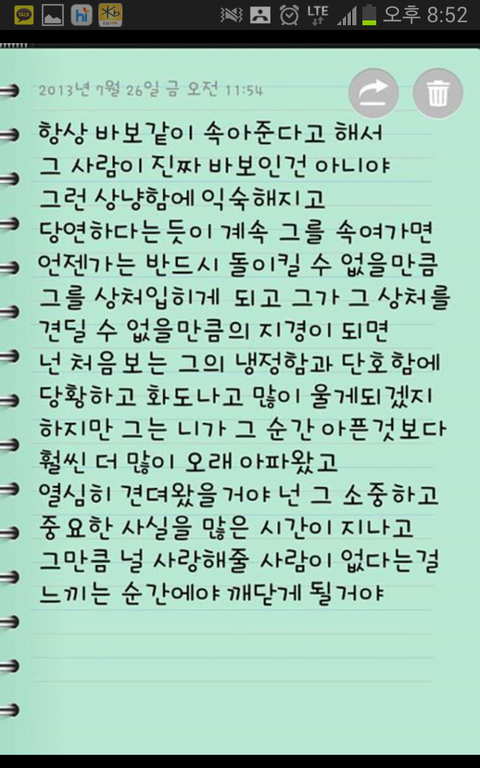 오후 8:52
LTE
TALK
hi
2013년 7월 26일 금 오전 11:54
항상 바보같이 속아준다고 해서
그 사람이 진짜 바보인건 아니야
그런 상냥함에 익숙해지고
당연하다는듯이 계속 그를 속여가면
언젠가는 반드시 돌이킬 수 없을만큼
그를 상처입히게 되고 그가 그 상처를
견딜 수 없을만큼의 지경이 되면
넌 처음보는 그의 냉정함과 단호함에
당황하고 화도나고 많이 울게되겠지
하지만 그는 니가 그 순간 아픈것보다
훨씬 더 많이 오래 아파왔고
열심히 견뎌왔을거야 넌 그 소중하고
중요한 사실을 많은 시간이 지나고
그만큼 널 사랑해줄 사람이 없다는걸
느끼는 순간에야 깨닫게 될거야